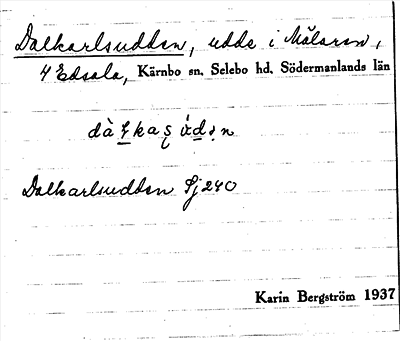 Dalkarlsudden, udde i Mälaren,
Kärnbo sn, Selebo hd, Södermanlands län
Dalkarlsudden Sj 240
Karin Bergström 1937